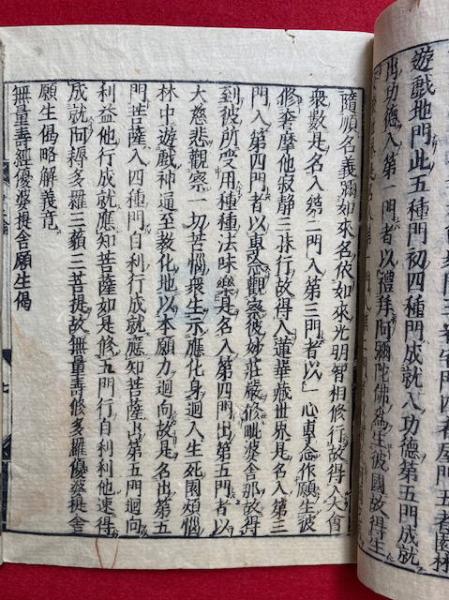 遊戲地門此五種門初四種門成就入功德第五門成就
出功德入第一門者以禮拜阿彌陀佛為生彼國故得生
隨順名義稱如來名依如來光明智相修行故得入大會
衆數是名入第二門入第三門者以一心專念作願生彼
修奢摩他寂靜三昧行故得入蓮華藏世界是名入第三
門入第四門者以專念觀察彼妙莊嚴修毗婆舍那故得
到彼所受用種種法味樂是名入第四門出第五門者以
大慈悲觀察一切苦惱衆生示應化身迴入生死園煩惱
林中遊戲神通至教化地以本願力迴向故是名出第五
門菩薩入四種門自利行成就應知菩薩出第五門迴向
利益他行成就應知菩薩如是修五門行自利利他速得
成就阿耨多羅三藐三菩提故無量壽修多羅優婆提舍
願生偈略解義竟
無量壽經優婆提舍願生偈